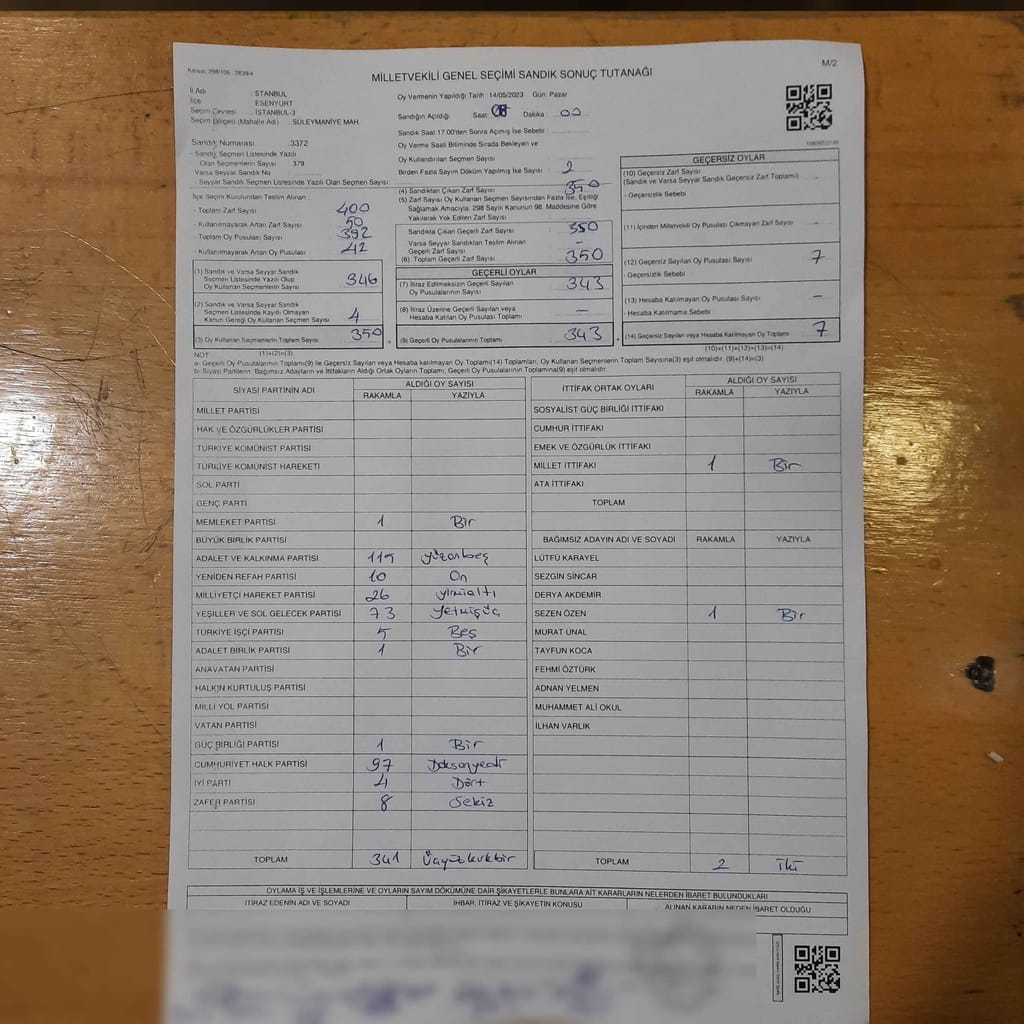 M/2
MİLLETVEKİLİ GENEL SEÇİMİ SANDIK SONUÇ TUTANAĞI
İl Adı : İSTANBUL
İlçe : ESENYURT
Seçim Çevresi : İSTANBUL-3
Seçim Bölgesi (Mahalle Adı) : SÜLEYMANİYE MAH.
Sandık Numarası : 3372
- Sandık Seçmen Listesinde Yazılı
Olan Seçmenlerin Sayısı : 379
Varsa Seyyar Sandık No
- Seyyar Sandık Seçmen Listesinde Yazılı Olan Seçmen Sayısı
İlçe Seçim Kurulundan Teslim Alınan ;
- Toplam Zarf Sayısı 400
- Kullanılmayarak Artan Zarf Sayısı 50
- Toplam Oy Pusulası Sayısı 392
- Kullanılmayarak Artan Oy Pusulası 42
(1) Sandık ve Varsa Seyyar Sandık
Seçmen Listesinde Yazılı Olup
Oy Kullanan Seçmenlerin Sayısı 346
(2) Sandık ve Varsa Seyyar Sandık
Seçmen Listesinde Kayıtlı Olmayan
Kanun Gereği Oy Kullanan Seçmen Sayısı 4
(3) Oy Kullanan Seçmenlerin Toplam Sayısı 350
(1)+(2)=(3)
Oy Vermenin Yapıldığı Tarih : 14/05/2023 Gün: Pazar
Sandığın Açıldığı Saat: Dakika : 00
Sandık Saat 17.00'den Sonra Açılmış İse Sebebi :
Oy Verme Saati Bitiminde Sırada Bekleyen ve
Oy Kullandırılan Seçmen Sayısı
Birden Fazla Sayım Döküm Yapılmış İse Sayısı 2
(4) Sandıktan Çıkan Zarf Sayısı 350
(5) Zarf Sayısı Oy Kullanan Seçmen Sayısından Fazla İse, Eşitliği
Sağlamak Amacıyla, 298 Sayılı Kanunun 98. Maddesine Göre
Yakılarak Yok Edilen Zarf Sayısı
Sandıkta Çıkan Geçerli Zarf Sayısı 350
Varsa Seyyar Sandıktan Teslim Alınan
Geçerli Zarf Sayısı –
(6) Toplam Geçerli Zarf Sayısı 350
GEÇERLİ OYLAR
(7) İtiraz Edilmeksizin Geçerli Sayılan
Oy Pusulalarının Sayısı 343
(8) İtiraz Üzerine Geçerli Sayılan veya
Hesaba Katılan Oy Pusulası Toplamı –
(9) Geçerli Oy Pusulalarının Toplamı 343
GEÇERSİZ OYLAR
(10) Geçersiz Zarf Sayısı
(Sandık ve Varsa Seyyar Sandık Geçersiz Zarf Toplamı) –
- Geçersizlik Sebebi :
(11) İçinden Milletvekili Oy Pusulası Çıkmayan Zarf Sayısı –
(12) Geçersiz Sayılan Oy Pusulası Sayısı 7
- Geçersizlik Sebebi
(13) Hesaba Katılmayan Oy Pusulası Sayısı –
- Hesaba Katılmama Sebebi :
(14) Geçersiz Sayılan veya Hesaba Katılmayan Oy Toplamı 7
(10)+(11)+(12)+(13)=(14)
NOT
a- Geçerli Oy Pusulalarının Toplamı(9) ile Geçersiz Sayılan veya Hesaba katılmayan Oy Toplamı(14) Toplamları, Oy Kullanan Seçmenlerin Toplam Sayısına(3) eşit olmalıdır. (9)+(14)=(3)
b- Siyasi Partilerin, Bağımsız Adayların ve İttifakların Aldığı Ortak Oyların Toplamı, Geçerli Oy Pusulalarının Toplamına(9) eşit olmalıdır.
SİYASİ PARTİNİN ADI ALDIĞI OY SAYISI
RAKAMLA YAZIYLA
MİLLET PARTİSİ
HAK VE ÖZGÜRLÜKLER PARTİSİ
TÜRKİYE KOMÜNİST PARTİSİ
TÜRKİYE KOMÜNİST HAREKETİ
SOL PARTİ
GENÇ PARTİ
MEMLEKET PARTİSİ 1 Bir
BÜYÜK BİRLİK PARTİSİ
ADALET VE KALKINMA PARTİSİ 115 yüzonbeş
YENİDEN REFAH PARTİSİ 10 On
MİLLİYETÇİ HAREKET PARTİSİ 26 yirmialtı
YEŞİLLER VE SOL GELECEK PARTİSİ 73 Yetmişüç
TÜRKİYE İŞÇİ PARTİSİ 5 Beş
ADALET BİRLİK PARTİSİ 1 Bir
ANAVATAN PARTİSİ
HALKIN KURTULUŞ PARTİSİ
MİLLİ YOL PARTİSİ
VATAN PARTİSİ
GÜÇ BİRLİĞİ PARTİSİ 1 Bir
CUMHURİYET HALK PARTİSİ 97 Doksanyedi
İYİ PARTİ 4 Dört
ZAFER PARTİSİ 8 Sekiz
TOPLAM 341 Üçyüzkırkbir
İTTİFAK ORTAK OYLARI ALDIĞI OY SAYISI
RAKAMLA YAZIYLA
SOSYALİST GÜÇ BİRLİĞİ İTTİFAKI
CUMHUR İTTİFAKI
EMEK VE ÖZGÜRLÜK İTTİFAKI
MİLLET İTTİFAKI 1 Bir
ATA İTTİFAKI
TOPLAM
BAĞIMSIZ ADAYIN ADI VE SOYADI RAKAMLA YAZIYLA
LÜTFÜ KARAYEL
SEZGİN SİNCAR
DERYA AKDEMİR
SEZEN ÖZEN 1 Bir
MURAT ÜNAL
TAYFUN KOCA
FEHMİ ÖZTÜRK
ADNAN YELMEN
MUHAMMET ALİ OKUL
İLHAN VARLIK
TOPLAM 2 İki
OYLAMA İŞ VE İŞLEMLERİNE VE OYLARIN SAYIM DÖKÜMÜNE DAİR ŞİKAYETLERLE BUNLARA AİT KARARLARIN NELERDEN İBARET BULUNDUKLARI
İTİRAZ EDENİN ADI VE SOYADI İHBAR, İTİRAZ VE ŞİKAYETİN KONUSU ALINAN KARARIN NEDEN İBARET OLDUĞU